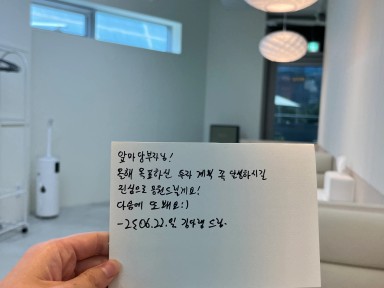 앞마당부자님!
올해 목표하신 투자 계획 꼭 달성하시길
진심으로 응원드릴게요!
다음에 또 봬요:)
-25.06.22.일 드림-